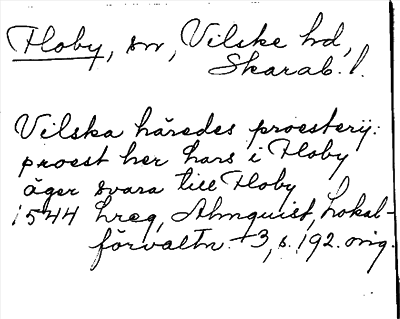 Floby, sn, Vilske hd,
Skarab. l.
Vilska häredes proesterij:
proest her hars i Floby
äger svara till Floby
1544 hreg, Almquist, Lokal-
förvaltn. 3, s. 192. orig.